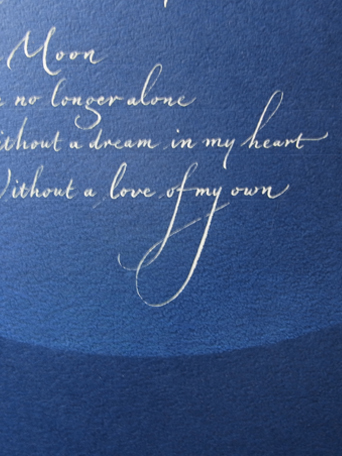 Moon
no longer alone
ithout a dream in my heart
ithout a love of my own